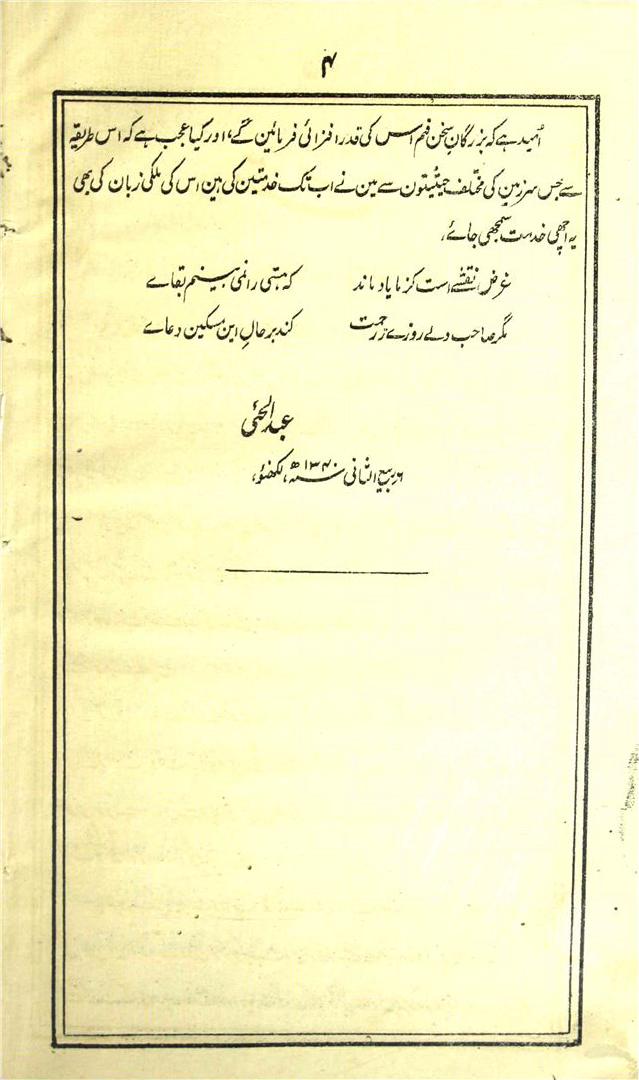 ۴
اُمید ہے کہ بزرگانِ سخن فہم اس کی قدر افزائی فرمائین گے، اور کیا عجب ہے کہ اس طریقہ
سے جس سرزمین کی مختلف حیثیتون سے مین نے اب تک خدمتین کی ہین اس کی ملکی زبان کی بھی
یہ اچھی خدمت سمجھی جائے،
غرض نقشے است کز ما یاد ماند کہ ہستی را نمی بینم بقاے
مگر صاحب دلے روزے ز رحمت کند بر حالِ این مسکین دعاے
عبد الحئی
۶ ربیع الثانی سنہ ۱۳۴۰ھ، لکھنؤ،